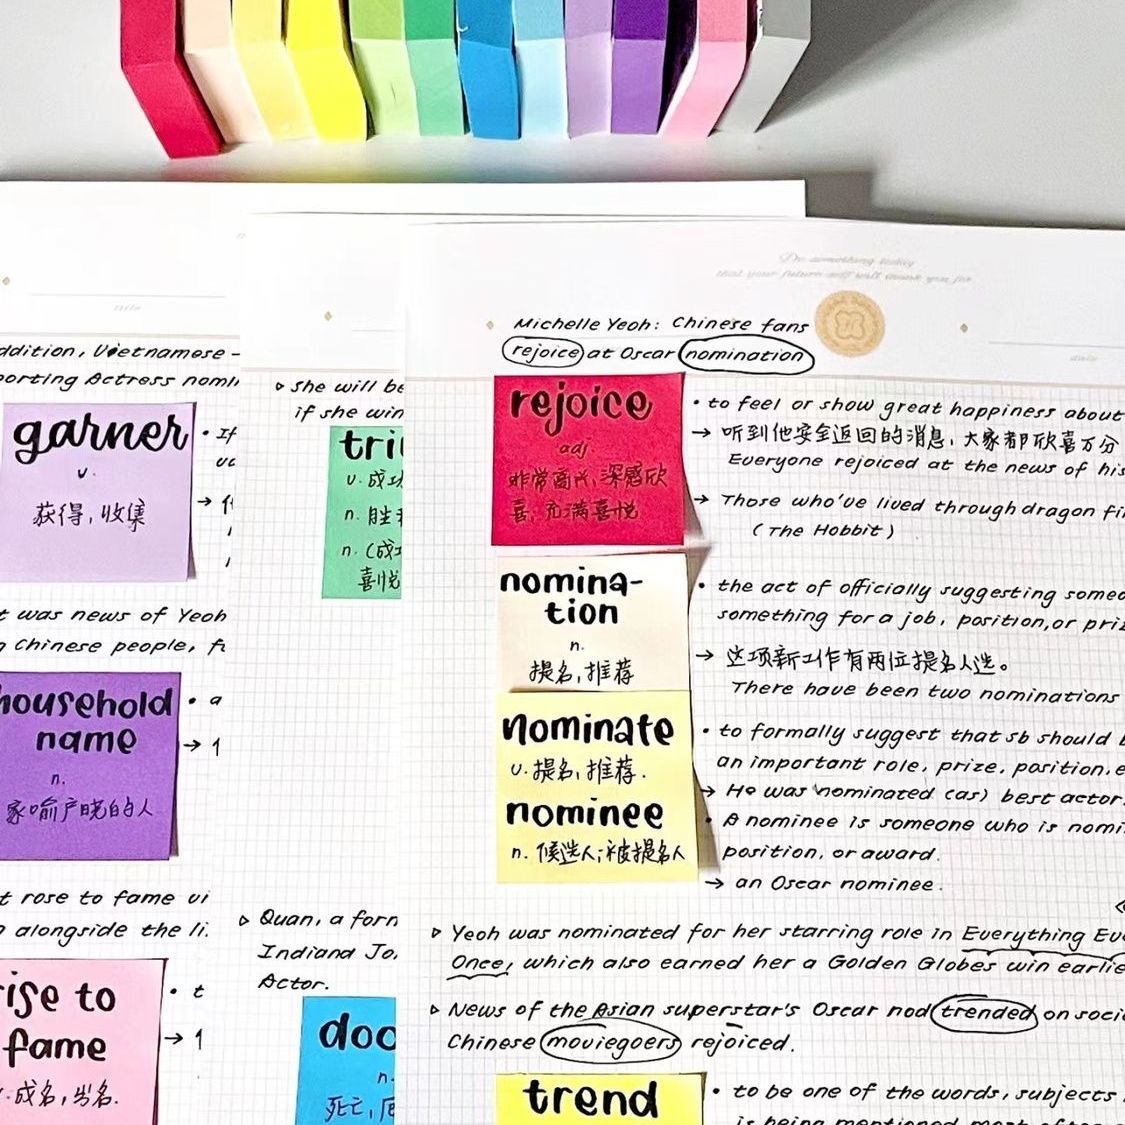 Do something today
that your future self will thank you for
ddition, Vietnamese –
porting Actress nomi
garner
v.
获得,收集
• If
→
t was news of Yeoh
Chinese people, f
household
name
n.
家喻户晓的人
• a
→ 1
t rose to fame vi
alongside the li.
rise to
fame
v. 成名,出名.
• t
→ 1
▷ She will be
if she win
tri
v. 成功
n. 胜利
n. (成功
喜悦
▷ Quan, a form
Indiand Jo,
Actor.
doo
n.
死亡,厄
Michelle Yeoh: Chinese fans
rejoice at Oscar nomination
rejoice
adj.
非常高兴,深感欣
喜;充满喜悦
• to feel or show great happiness about
→ 听到他安全返回的消息,大家都欣喜万分
Everyone rejoiced at the news of his
→ Those who've lived through dragon fi
(The Hobbit)
nomina-
tion
n.
提名,推荐
• the act of officially suggesting someo
something for a job, position, or priz
→ 这项新工作有两位提名人选。
There have been two nominations
nominate
v. 提名,推荐.
nominee
n. 候选人;被提名人
• to formally suggest that sb should b
an important role, prize, position, e
→ He was nominated (as) best actor.
• A nominee is someone who is nomi
position, or award.
→ an Oscar nominee.
▷ Yeoh was nominated for her starring role in Everything Eve
Once, which also earned her a Golden Globes win earlie
▷ News of the Asian superstar's Oscar nod trended on soci
Chinese moviegoers rejoiced.
trend
• to be one of the words, subjects
is being mentioned most often